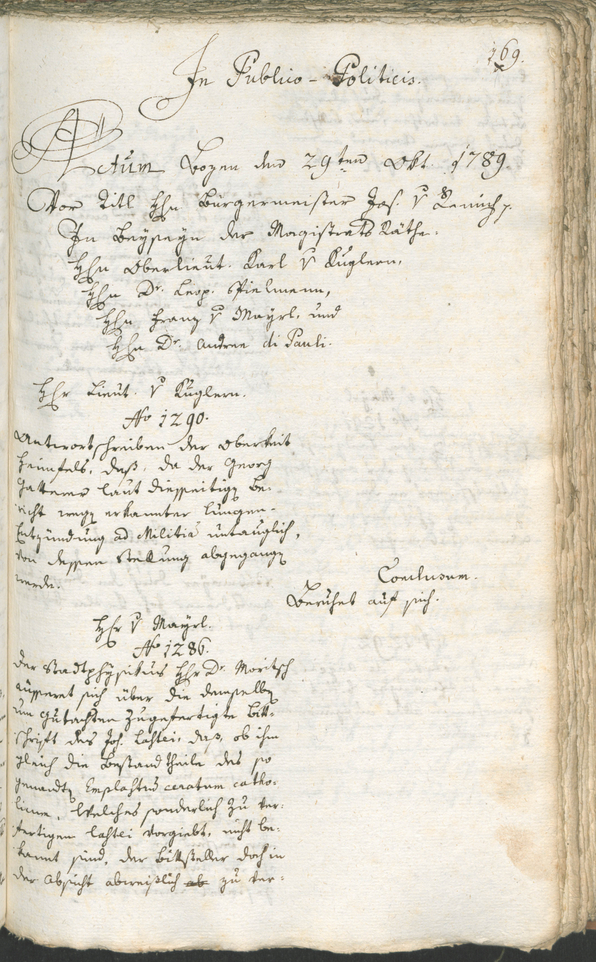 169.
In Publico-Politicis.
Actum Bozen den 29ten Okt 1789
Vor Titl Hhn Bürgermeister Jos. v
In Beyseyn der Magistrats Räthe.
Hhn Oberlieut. Karl v Kuglern,
Hhn Dr. Leop. Spielmann,
Hhn Franz v Mayrl, und
Hhn Dr Andree di Pauli.
Hhr Lieut. v Kuglern.
No 1290.
Antwortschreiben der Oberkeit
Heimfels, daß, da der Georg
Gatterer laut diesseitig Be-
richt wegen erkannter Lungen-
Entzündung ad Militia untauglich,
von dessen Stellung abgegangen
werde.
Conclusum.
Beruhet auf sich.
Hhr v Mayrl.
No 1286.
Der Stadtphysikus Hhr Dr Moritsch
äusseret sich über die demselben
um Gutachten zugefertigte Bitt-
schrift des Joh. Lastei, daß, ob ihm
gleich die Bestandtheile des so
genandten Emplastrs ceratum catho-
licum, welches sonderlich zu ver-
fertigen Lastei vorgiebt, nicht be-
kannt sind, der Bittsteller doch in
der Absicht abweißlich zu ver-